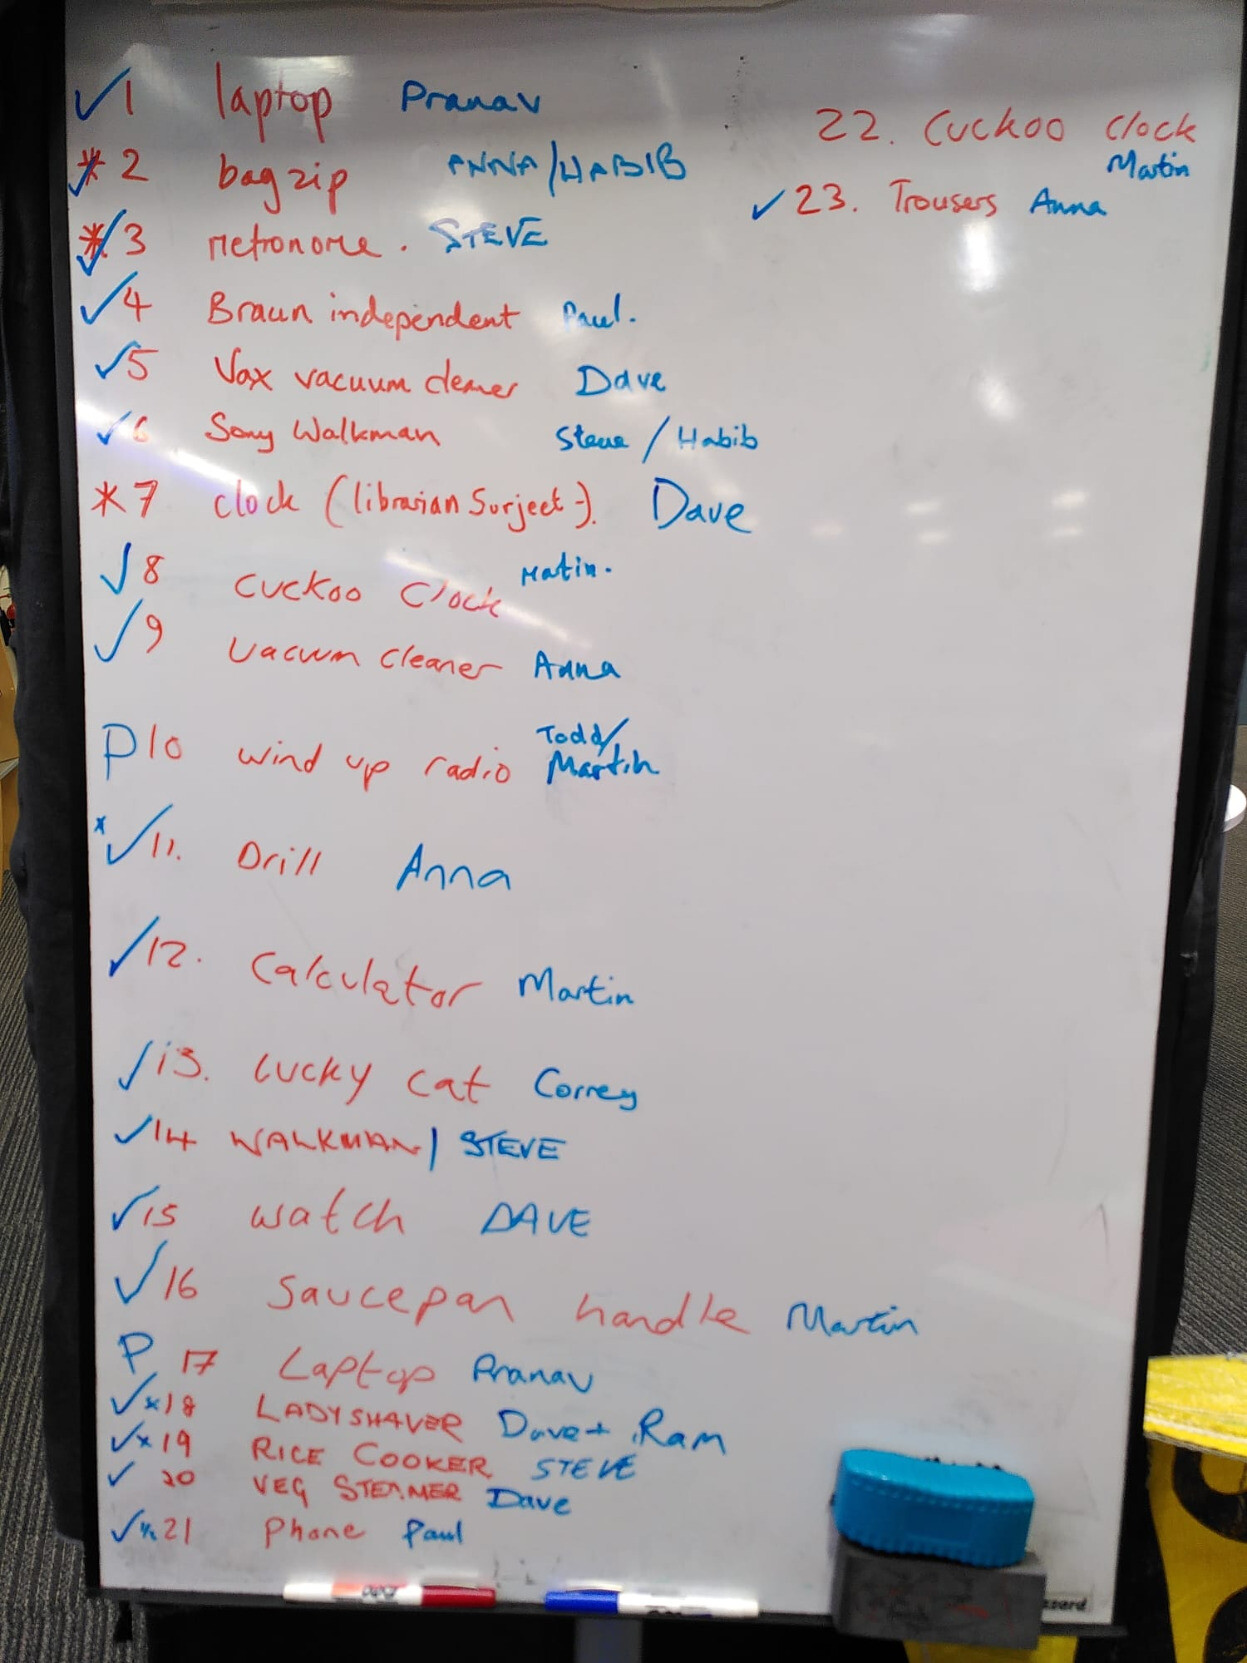 ✓1 laptop Pranav
* 2 bag zip ANNA/HABIB
* 3 metronome. STEVE
✓4 Braun independent Paul.
✓5 Vax vacuum cleaner Dave
✓6 Sony Walkman Steve / Habib
*7 clock (librarian Surjeet-). Dave
✓8 Cuckoo Clock Martin.
✓9 Vacuum cleaner Anna
P10 wind up radio Todd/
Martin
*✓11. Drill Anna
✓12. Calculator Martin
✓13. Lucky cat Correy
✓14 WALKMAN | STEVE
✓15 Watch DAVE
✓16 Saucepan handle Martin
P 17 Laptop Pranav
✓*18 LADYSHAVER Dave + Ram
✓x 19 RICE COOKER STEVE
✓ 20 VEG STEAMER Dave
✓ 21 Phone Paul
22. Cuckoo clock
Martin
✓23. Trousers Anna